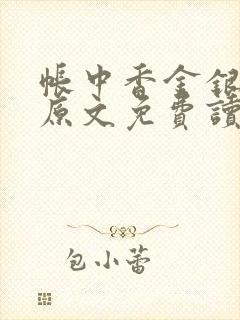 帳中香金銀
原文免費讀
包小蕾